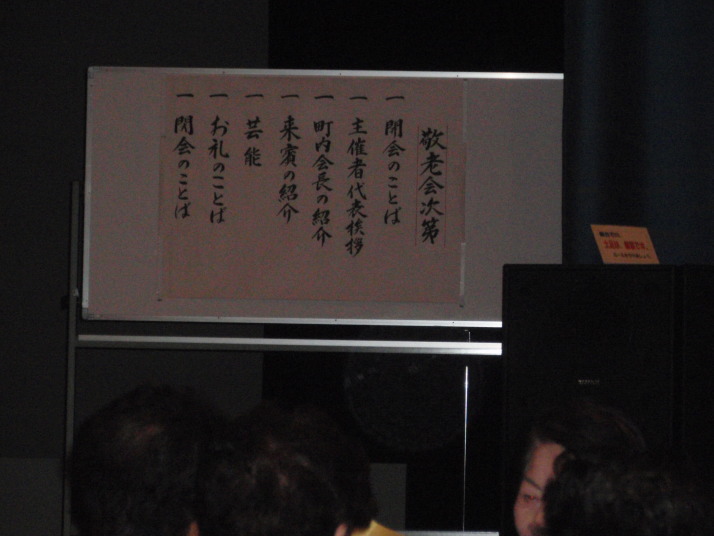 敬老会次第
一 開会のことば
一 主催者代表挨拶
一 町内会長の紹介
一 来賓の紹介
一 芸能
一 お礼のことば
一 閉会のことば